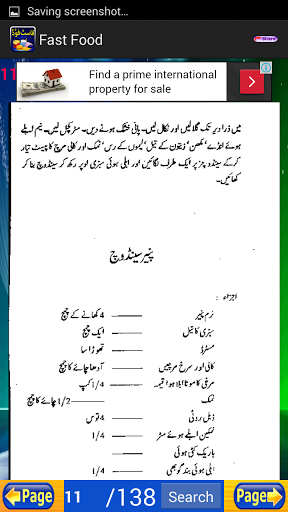 Saving screenshot...
فاسٹ فوڈ
Fast Food
Share
11
Find a prime international
property for sale
میں ذرا دیر تک گلا لیں اور نکال لیں۔ پانی خشک ہونے دیں۔ مٹر کچل لیں۔ نیم ابلے
ہوئے انڈے، مکھن، زیتون کے تیل، لیموں کے رس، نمک اور کالی مرچ کا پیسٹ تیار
کر کے سینڈوچز پر ایک طرف لگائیں اور ابلی ہوئی سبزی اوپر رکھ کر سینڈوچ بنا کر
کھائیں۔
پنیر سینڈوچ
اجزاء :
نرم پنیر ——— 4 کھانے کے چمچ
سبزی کا تیل ——— ایک چمچ
مسٹرڈ ——— تھوڑا سا
کالی اور سرخ مرچیں ——— آدھا چائے کا چمچ
مرغی کا موٹا ابلا ہوا قیمہ ——— 1/4 کپ
نمک ——— 1/2 چائے کا چمچ
ڈبل روٹی ——— 4 توس
نمکین ابلے ہوئے مٹر ——— 1/4
باریک کٹی ہوئی
ابلی ہوئی بند گوبھی ——— 1/4
Page 11 /138 Search Page